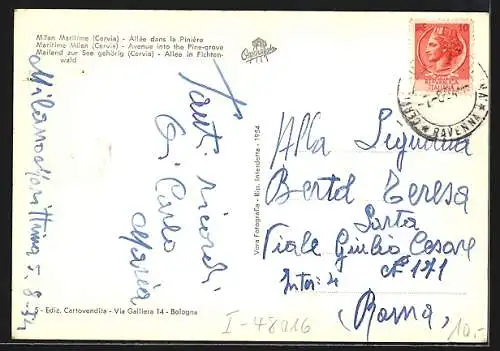 Milan Maritime (Cervia) - Allée dans la Pinière
Maritime Milan (Cervia) - Avenue into the Pine-grove
Mailand zur See gehörig (Cervia) - Allee in Fichten-
wald
Milano Marittima 5-8-54
Tanti ricordi
Di Carlo
Maria
Vera Fotografia - Rip. Interdetta - 1954
10
CERVIA * RAVENNA *
Alla Signorina
Berto Teresa
Viale Giulio Cesare
N° 171
Inter: 4
(Roma)
S - Ediz. Cartovendita - Via Galliera 14 - Bologna
I-48016
10.-